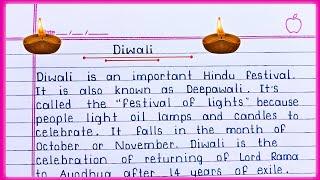 Date
Diwali
Diwali is an important Hindu festival.
It is also known as Deepawali. It's
called the "festival of lights" because
people light oil lamps and candles to
celebrate. It falls in the month of
October or November. Diwali is the
celebration of returning of Lord Rama
to Ayodhya after 14 years of exile.